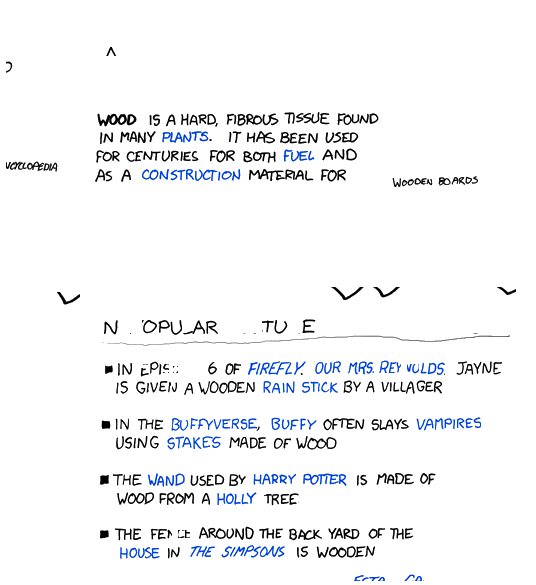 WOOD IS A HARD, FIBROUS TISSUE FOUND
IN MANY PLANTS. IT HAS BEEN USED
FOR CENTURIES FOR BOTH FUEL AND
AS A CONSTRUCTION MATERIAL FOR
WOODEN BOARDS
IN 6 OF FIREFLY, OUR MRS. JAYNE
IS GIVEN A WOODEN RAIN STICK BY A VILLAGER
IN THE BUFFYVERSE, BUFFY OFTEN SLAYS VAMPIRES
USING STAKES MADE OF WOOD
THE WAND USED BY HARRY POTTER IS MADE OF
WOOD FROM A HOLLY TREE
THE AROUND THE BACK YARD OF THE
HOUSE IN THE SIMPSONS IS WOODEN